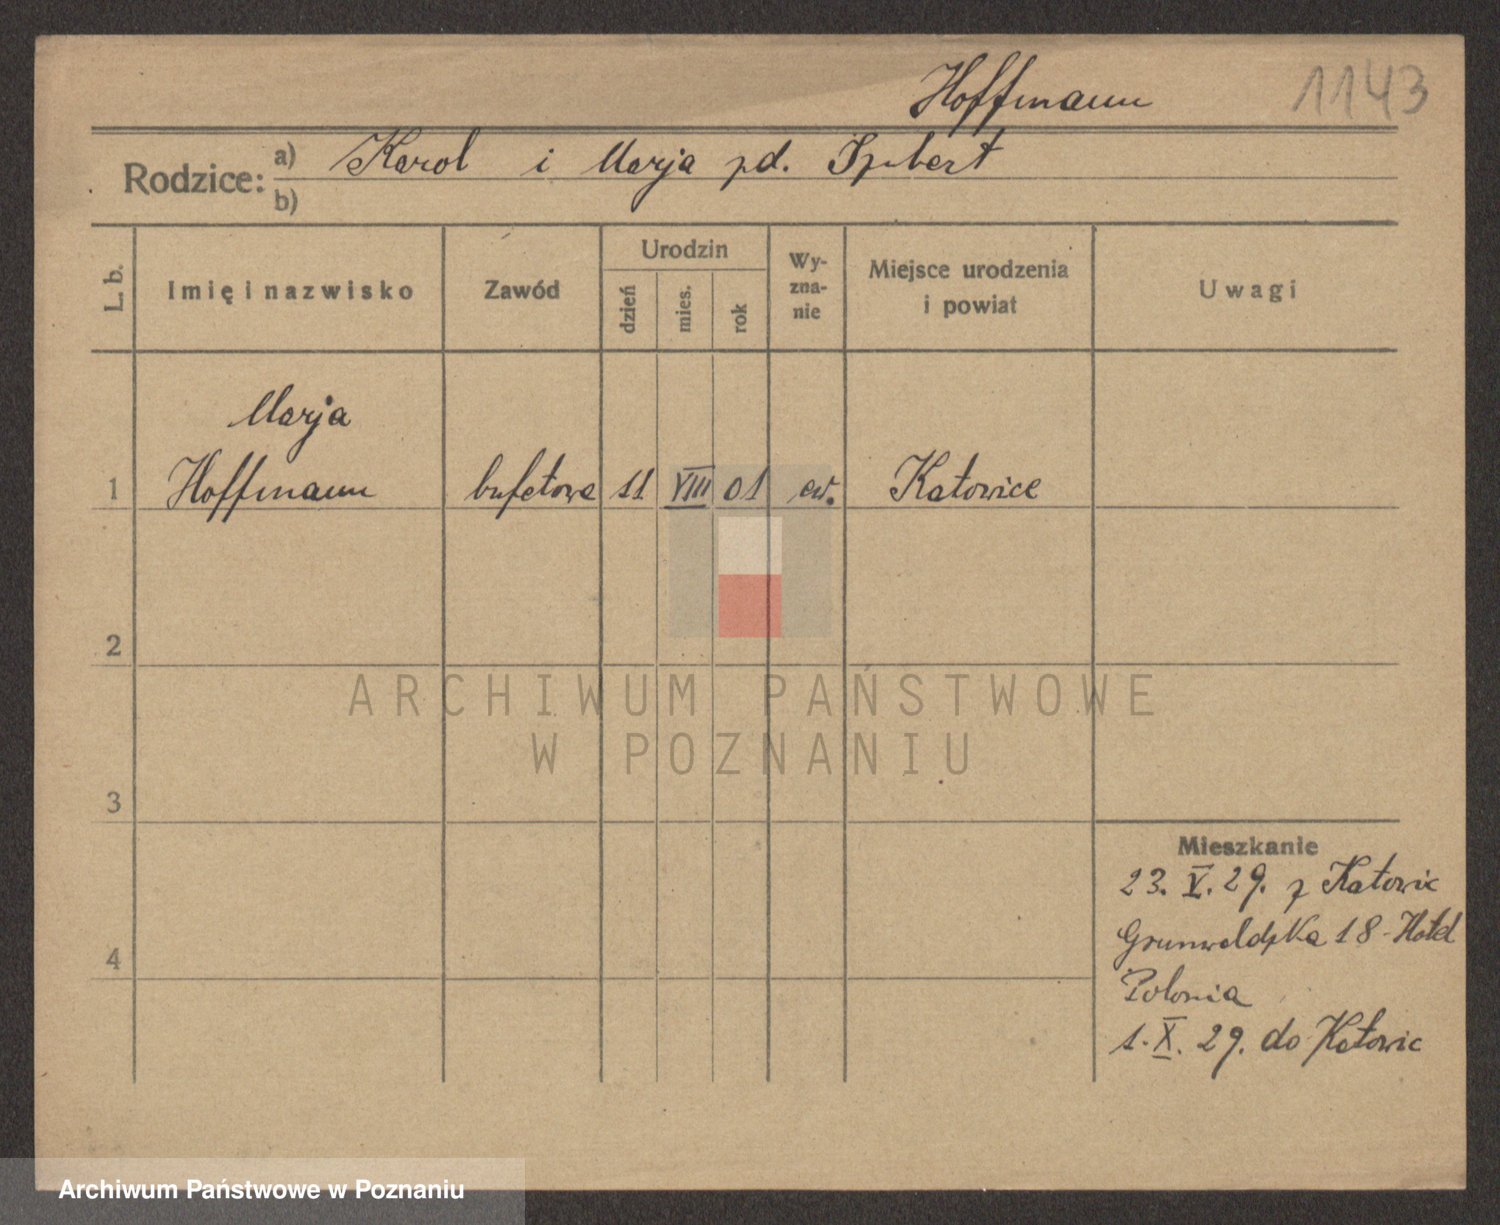 Hoffmann 1143
Rodzice: a) Karol i Marja pd.
b)
L. b. Imię i nazwisko Zawód Urodzin Wy-zna-nie Miejsce urodzenia i powiat Uwagi
dzień mies. rok
Marja
1 Hoffmann bufetowa 11 VIII 01 ew. Katowice
2
3
4
Mieszkanie
23. V. 29. z Katowic
Grunwaldzka 18 - Hotel
Polonia
1. X. 29. do Katowic
ARCHIWUM PAŃSTWOWE
W POZNANIU
Archiwum Państwowe w Poznaniu